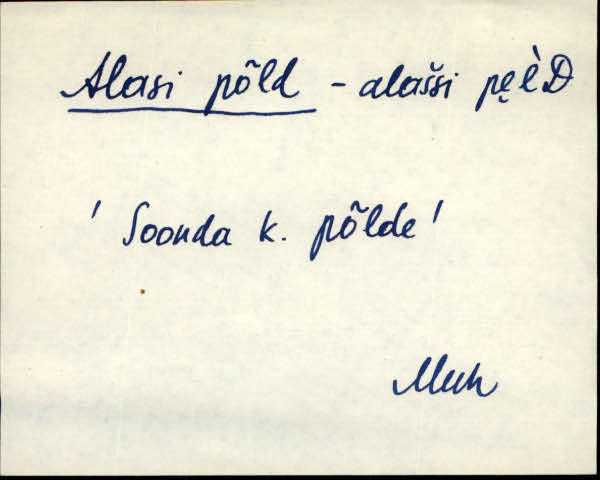 Alasi põld - alašši pęl̀D
' Soonda k. põlde '
Muh